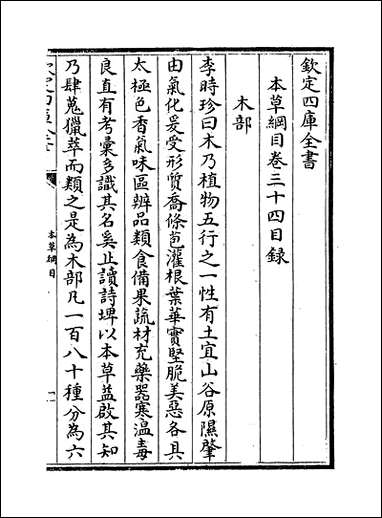 欽定四庫全書
本草綱目卷三十四目録
木部
李時珍曰木乃植物五行之一性有土宜山谷原隰肇
由氣化爰受形質喬條苞灌根葉華實堅脆美惡各具
太極色香氣味區辨品類食備果蔬材充藥器寒温毒
良直有考彚多識其名奚止讀詩埤以本草益啟其知
乃肆蒐獵萃而類之是為木部凡一百八十種分為六
本草綱目